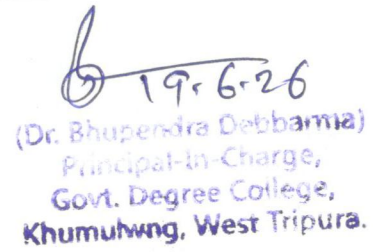 19.6.26
(Dr. Bhupendra Debbarma)
Principal-In-Charge,
Govt. Degree College,
Khumulwng, West Tripura.